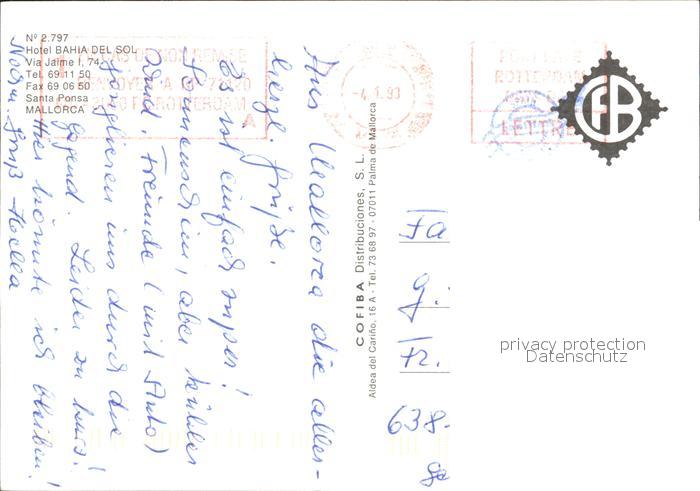 Nº 2.797
Hotel BAHIA DEL SOL
Via Jaime I, 74
Tel. 69 11 50
Fax 69 06 50
Santa Ponsa
MALLORCA
ROTTERDAM
A
-4.1.93
ROTTERDAM
LETTRE
CFB
Aus Mallorca die aller-
herzl. Grüße.
Es ist einfach super!
Sonnenschein, aber kühler
Wind. Freunde (mit Auto)
uns durch die
Gegend. Leider zu kurz!
Hier könnte ich bleiben!
Gruß Hella
COFIBA Distribuciones, S. L.
Aldea del Cariño, 16 A - Tel. 73 68 97 - 07011 Palma de Mallorca
Fa
g.
Fr.
638-
privacy protection
Datenschutz